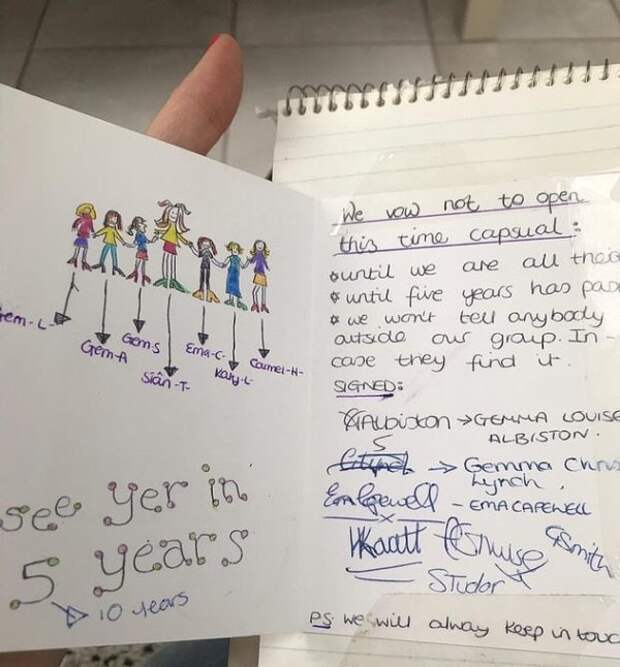 Gem-A
Gem-S
Siân-T-
Ema-C-
Katy-L-
see yer in
5 years
10 years
We vow not to open
this time capsual:
until we are all
until five years has
we won't tell anybody
outside our group. In-
case they find it.
SIGNED:
GAlbiston → GEMMA LOUISE
ALBISTON.
→ Gemma
Lynch.
EmaCapewell - EMA CAPEWELL
GSmith
STudor
PS we will alway keep in